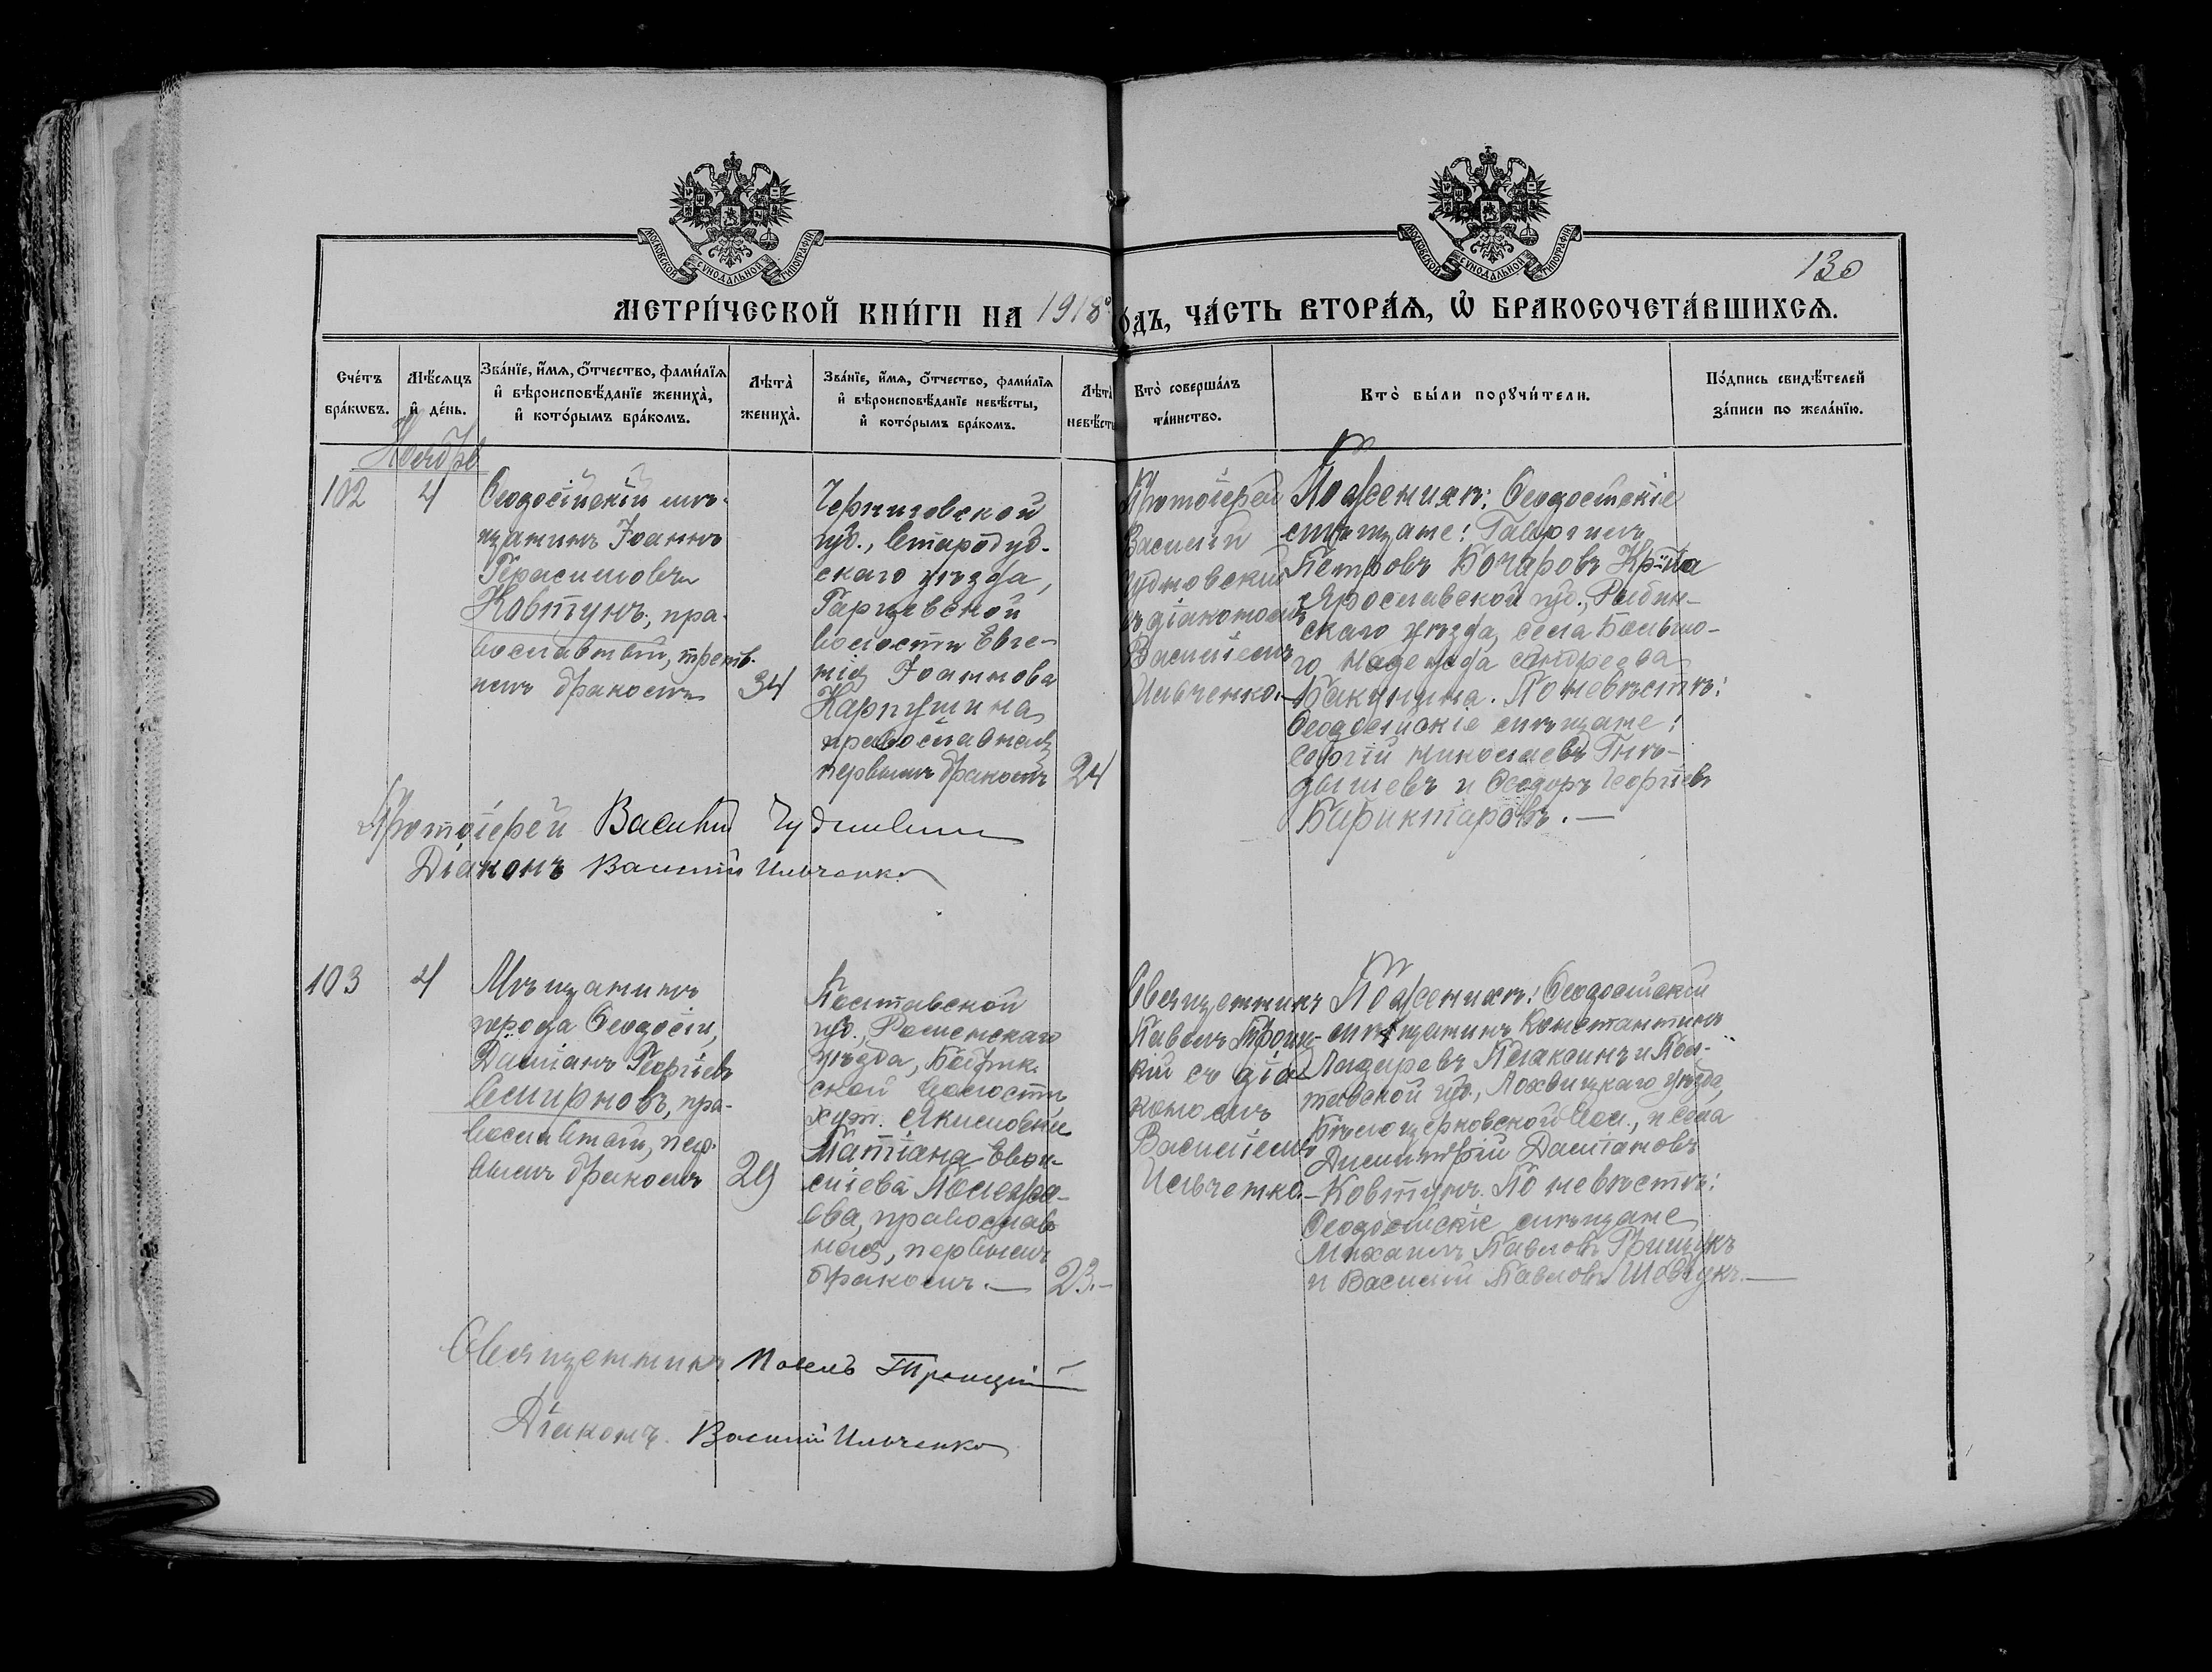 МОСКОВСКОЙ СѴНОДАЛЬНОЙ ТИПОГРАФІИ
МОСКОВСКОЙ СѴНОДАЛЬНОЙ ТИПОГРАФІИ
130
МЕТРИ́ЧЕСКОЙ КНИ́ГИ НА 1918 го́дъ, ЧА́СТЬ ВТОРА́Ѧ, Ѡ҆ БРАКОСОЧЕТА́ВШИХСѦ.
Сче́тъ бра́кѡвъ.
Мѣ́сѧцъ и҆ де́нь.
Зва́нїе, и҆́мѧ, ѻ҆́тчество, фами́лїѧ
и҆ вѣроисповѣ́данїе жениха̀,
и҆ кото́рымъ бра́комъ.
Лѣта̀ жениха̀.
Зва́нїе, и҆́мѧ, ѻ҆́тчество, фами́лїѧ
и҆ вѣроисповѣ́данїе невѣ́сты,
и҆ кото́рымъ бра́комъ.
Лѣта̀ невѣ́сты
Кто̀ соверша́лъ
та́инство.
Кто̀ бы́ли порꙋчи́тели.
По́дпись свидѣ́телей
за́писи по жела́нїю.
Ноябрь
102
4
Ѳеодосійскій мѣ-
щанинъ Іоаннъ
Герасимовъ
Ковтунъ, пра-
вославный, треть-
имъ бракомъ
34
Черниговской
губ., Стародуб-
скаго уѣзда,
Гарцевской
волости Евге-
нія Іоаннова
Карпушина
православная
первымъ бракомъ
24
Протоіерей
Василій
Чудновскій
съ діакономъ
Василіемъ
Ильченко.
По женихѣ: Ѳеодосійскіе
мѣщане: Гавріилъ
Петровъ Бочаровъ Кр-ка
Ярославской губ., Рыбин-
скаго уѣзда, села Большо-
го Надежда Андреева
Бакунина. По невѣстѣ:
Ѳеодосійскіе мѣщане:
Сергій Николаевъ
и Ѳеодоръ Георгіевъ
Протоіерей Василій Чудновскій
Діаконъ Василій Ильченко
103
4
Мѣщанинъ
города Ѳеодосіи,
Даміанъ Георгіевъ
Смирновъ, пра-
вославный, пер-
вымъ бракомъ
29
Полтавской
губ., Роменскаго
уѣзда,
ской волости
хут. Акимовки
Татіана
сіева
ова, православ
ная, первымъ
бракомъ. —
23. —
Священникъ
Павелъ Троиц-
кій съ діа-
кономъ
Василіемъ
Ильченко.
По женихѣ: Ѳеодосійскій
мѣщанинъ Константинъ
Лазаревъ Плаксинъ и Пол-
тавской губ., Лохвицкаго уѣзда,
Бѣлоцерковской вол., и села
Димитрій Даміановъ
Ковтунъ. По невѣстѣ:
Ѳеодосійскіе мѣщане
Михаилъ Павловъ Грищукъ
и Василій Павловъ Шевчукъ. —
Священникъ Павелъ Троицкій
Діаконъ Василій Ильченко